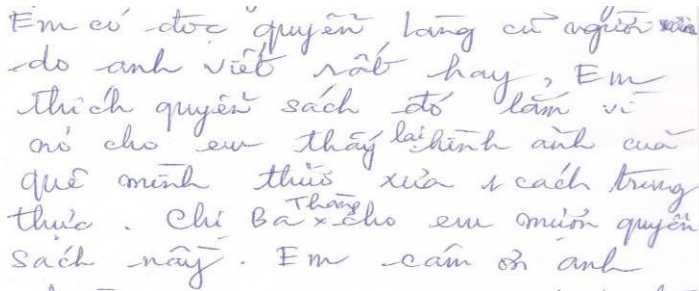 Em có đọc quyển Làng cũ người xưa
do anh viết rất hay, Em
thích quyển sách đó lắm vì
nó cho em thấy lại hình ảnh của
quê mình thủa xưa 1 cách trung
thực. Chị Ba Thắng cho em mượn quyển
sách nầy. Em cám ơn anh